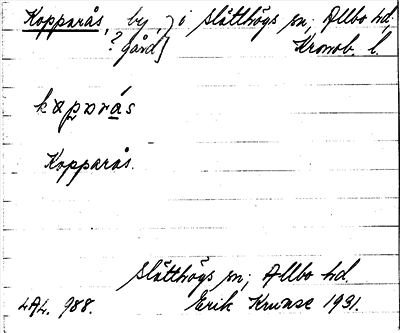 Kopparås, by, } i Slätthögs sn; Allbo hd,
? Gård} Kronob. l.
Kopparås.
Slätthögs sn; Allbo hd.
LAL. 988. Erik Krunse 1931.